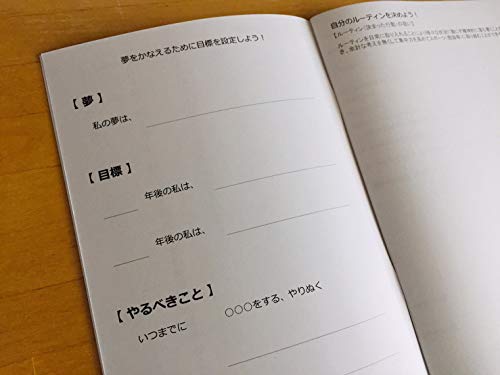 夢をかなえるために目標を設定しよう！
【 夢 】
私の夢は、
【 目標 】
年後の私は、
年後の私は、
【 やるべきこと 】
いつまでに ○○○をする、やりぬく
自分のルーティンを決めよう！